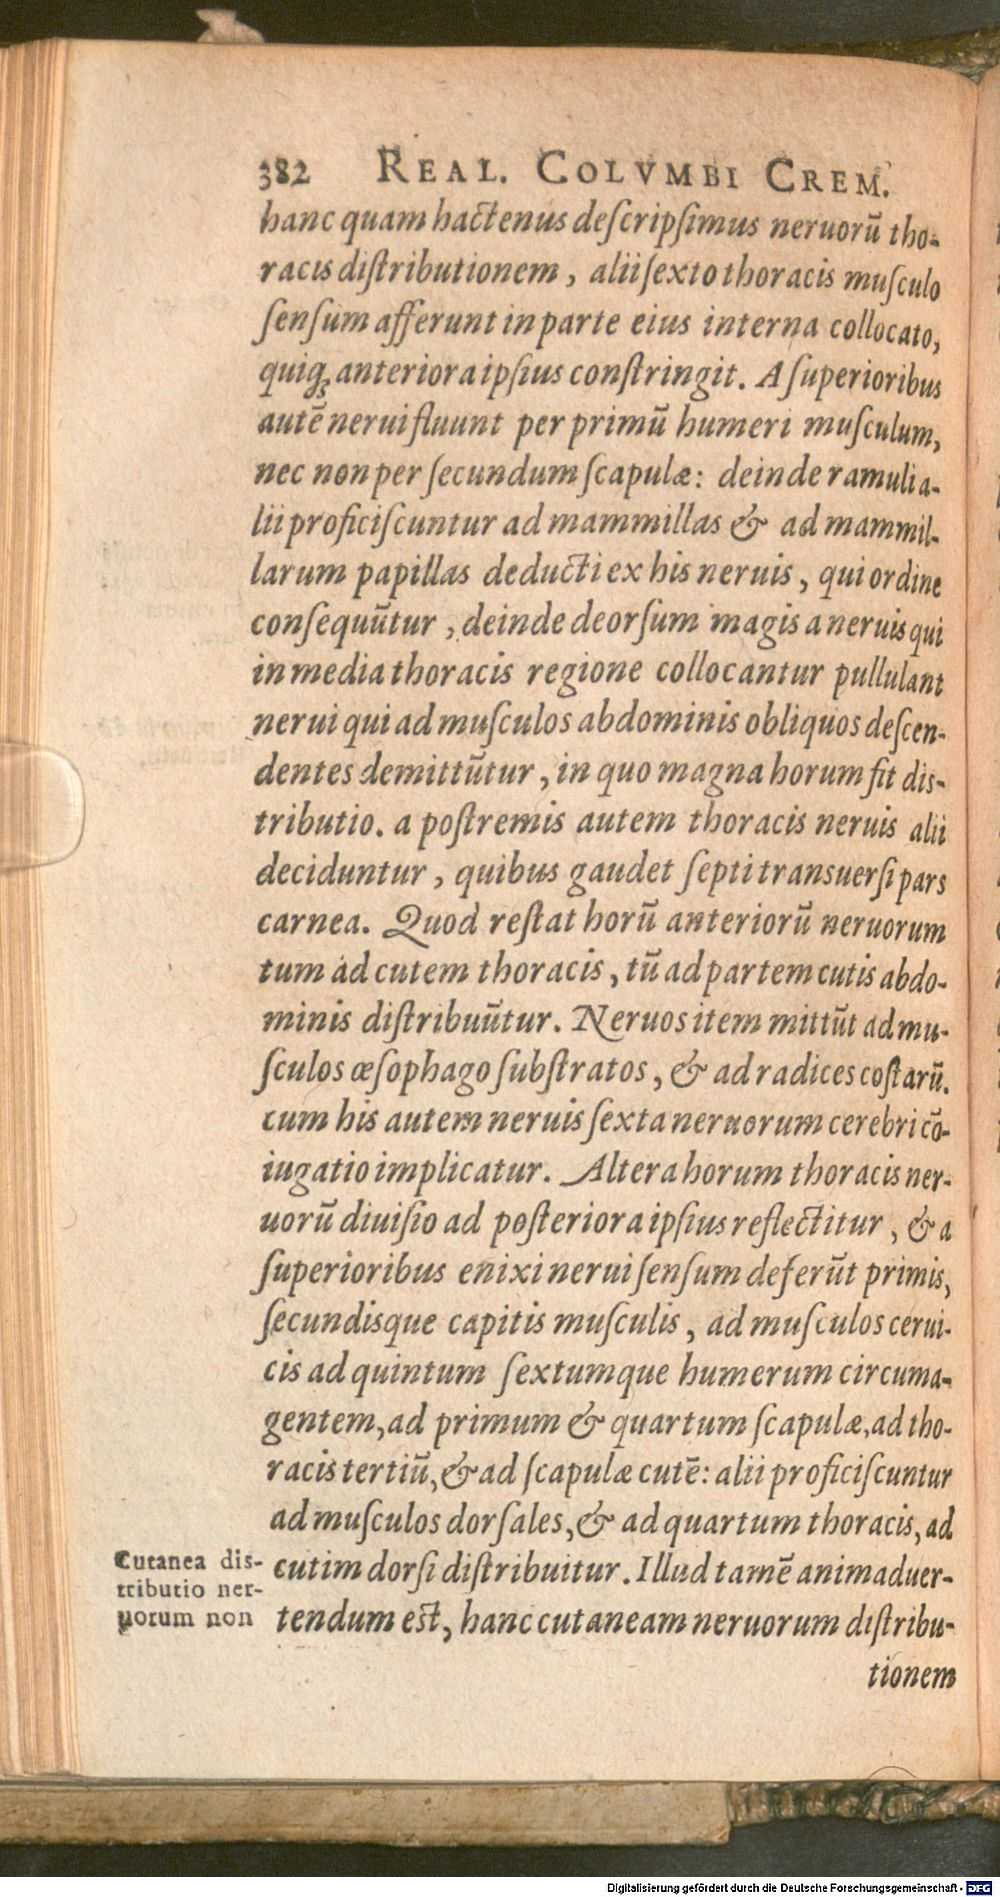 382 REAL. COLVMBI CREM.
hanc quam hactenus deſcripſimus neruorū tho-
racis diſtributionem, alii ſexto thoracis muſculo
ſenſum afferunt in parte eius interna collocato,
quiq; anteriora ipſius conſtringit. A ſuperioribus
autē nerui fluunt per primū humeri muſculum,
nec non per ſecundum ſcapulæ: deinde ramuli a-
lii proficiſcuntur ad mammillas & ad mammil-
larum papillas deducti ex his neruis, qui ordine
conſequūtur, deinde deorſum magis a neruis qui
in media thoracis regione collocantur pullulant
nerui qui ad muſculos abdominis obliquos deſcen-
dentes demittūtur, in quo magna horum fit dis-
tributio. a poſtremis autem thoracis neruis alii
deciduntur, quibus gaudet ſepti transuerſi pars
carnea. Quod reſtat horū anteriorū neruorum
tum ad cutem thoracis, tū ad partem cutis abdo-
minis diſtribuūtur. Neruos item mittūt ad mu-
ſculos œſophago ſubſtratos, & ad radices coſtarū.
cum his autem neruis ſexta neruorum cerebri cō-
iugatio implicatur. Altera horum thoracis ner-
uorū diuiſio ad poſteriora ipſius reflectitur, & a
ſuperioribus enixi nerui ſenſum deferūt primis,
ſecundisque capitis muſculis, ad muſculos cerui-
cis ad quintum ſextumque humerum circuma-
gentem, ad primum & quartum ſcapulæ, ad tho-
racis tertiū, & ad ſcapulæ cutē: alii proficiſcuntur
ad muſculos dorſales, & ad quartum thoracis, ad
cutim dorſi diſtribuitur. Illud tamē animaduer-
tendum est, hanc cutaneam neruorum diſtribu-
tionem
Cutanea dis-
tributio ner-
uorum non
Digitalisierung gefördert durch die Deutsche Forschungsgemeinschaft - DFG